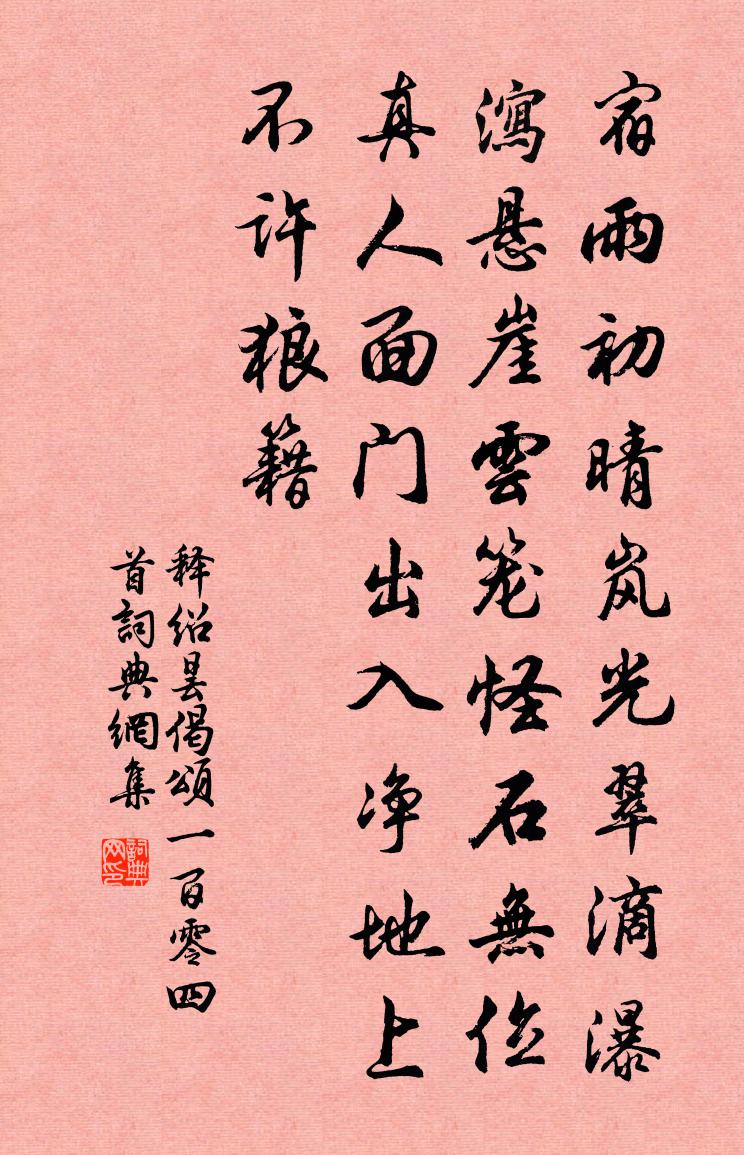 宿雨初晴岚光翠滴瀑
瀉悬崖雲笼怪石無位
真人面门出入净地上
不许狼籍
释绍昙偈頌一百零四
首詞典網集
詞典网印